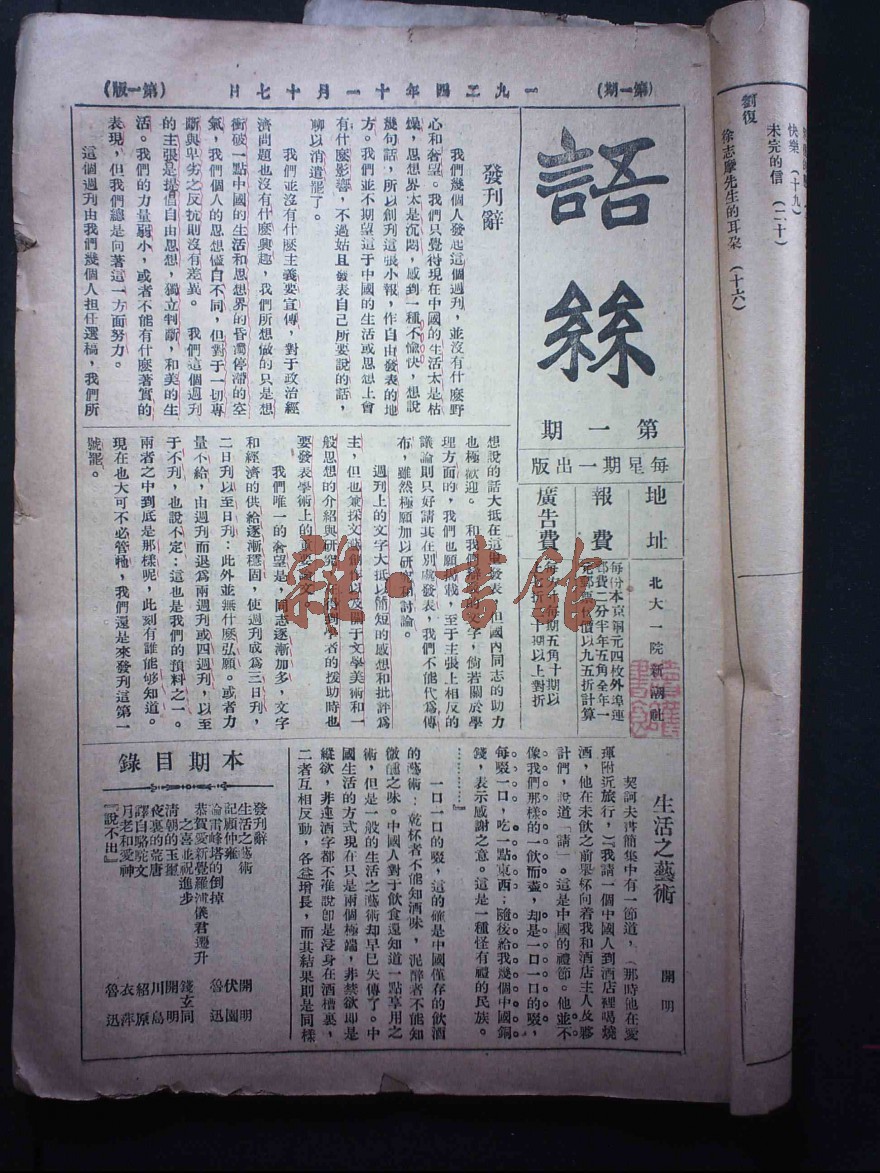 一九二四年十一月十七日
（第一期）
（第一版）
語絲
第一期
每星期一出版
地址
北大一院新潮社
報費
每份本京銅元四枚外埠連
郵費二分半年五角全年一
元郵票代價以九五折計算
廣告費
每方寸每期五角十期以
上七折二十期以上對折
發刊辭
我們幾個人發起這個週刊，並沒有什麼野
心和奢望。我們只覺得現在中國的生活太是枯
燥，思想界太是沉悶，感到一種不愉快，想說
幾句話，所以創刊這張小報，作自由發表的地
方。我們並不期望這于中國的生活或思想上會
有什麼影響，不過姑且發表自己所要說的話，
聊以消遣罷了。
我們並沒有什麼主義要宣傳，對于政治經
濟問題也沒有什麼興趣，我們所想做的只是想
衝破一點中國的生活和思想界的昏濁停滯的空
氣，我們個人的思想儘自不同，但對于一切專
斷與卑劣之反抗則沒有差異。我們這個週刊
的主張是提倡自由思想，獨立判斷，和美的生
活。我們的力量弱小，或者不能有什麼著實的
表現，但我們總是向著這一方面努力。
這個週刊由我們幾個人担任選稿，我們所
想說的話大抵在這裏發表，但國內同志的助力
也極歡迎。和我們辯駁的文字，倘若關於學
理方面的，我們也願揭載，至于主張上相反的
議論則只好請其在別處發表，我們不能代為傳
布，雖然極願加以研究和討論。
週刊上的文字大抵以簡短的感想和批評為
主，但也兼採文藝創作以及關于文學美術和一
般思想的介紹與研究，在得到學者的援助時也
要發表學術上的重要論文。
我們唯一的奢望是，同志逐漸加多，文字
和經濟的供給逐漸穩固，使週刊成為三日刊，
二日刊以至日刊：此外並無什麼弘願。或者力
量不給，由週刊而退為兩週刊或四週刊，以至
于不刊，也說不定：這也是我們的預料之一。
兩者之中到底是那樣呢，此刻有誰能够知道。
現在也大可不必管牠，我們還是來發刊這第一
號罷。
生活之藝術
開明
契訶夫書簡集中有一節道，（那時他在愛
琿附近旅行，）『我請一個中國人到酒店裡喝燒
酒，他在未飲之前舉杯向着我和酒店主人及夥
計們，說道「請」。這是中國的禮節。他並不
像我們那樣的一飲而盡，却是一口一口的啜，
每啜一口，吃一點東西；隨後給我幾個中國銅
錢，表示感謝之意。這是一種怪有禮的民族。
…………』
一口一口的啜，這的確是中國僅存的飲酒
的藝術：乾杯者不能知酒味，泥醉者不能知
微醺之味。中國人對于飲食還知道一點享用之
術，但是一般的生活之藝術却早已失傳了。中
國生活的方式現在只是兩個極端，非禁欲即是
縱欲，非連酒字都不准說即是浸身在酒槽裏，
二者互相反動，各益增長，而其結果則是同樣
本期目錄
發刊辭
生活之藝術　開明
記顧仲雍　伏園
論雷峰塔的倒掉　魯迅
恭賀愛新覺羅溥儀君遷升
之喜並祝進步　錢玄同
清朝的玉璽　開明
夜裏的荒唐　川島
譯自駱駝文　紹原
月老和愛神　衣萍
『說不出』　魯迅
快樂（十九）
未完的信（二十）
劉復
徐志摩先生的耳朶（十六）
雜·書館